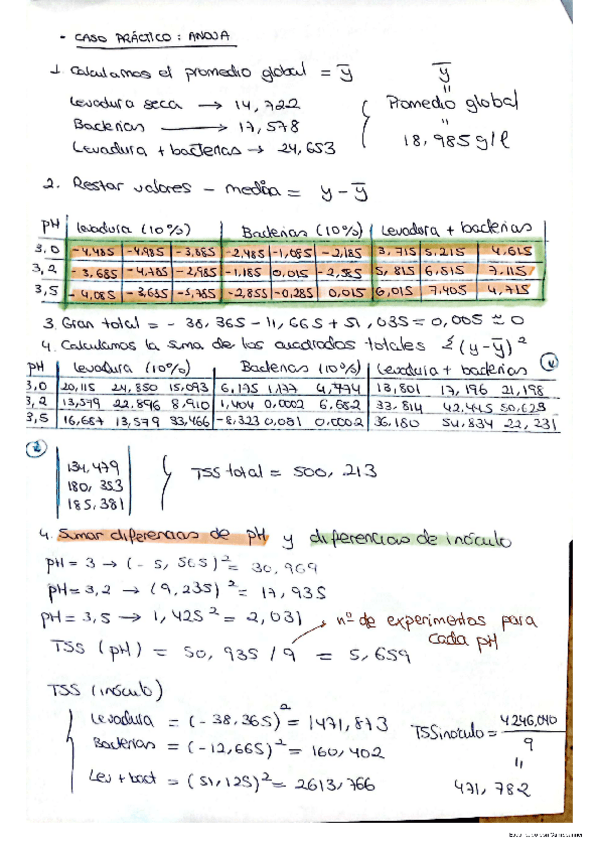 - CASO PRÁCTICO: ANOVA
1. Calculamos el promedio global = y̅
Levadura seca → 14,722
Bacterias → 17,578
Levadura + bacterias → 24,653
y̅
=
Promedio global
=
18,985 g/l
2. Restar valores - media = y - y̅
pH levadura (10%) Bacterias (10%) Levadura + bacterias
3,0 -4,485 -4,985 -3,885 -2,485 -1,085 -2,185 3,715 5,215 4,615
3,2 -3,685 -4,785 -2,985 -1,185 0,015 -2,585 5,815 6,515 7,115
3,5 -4,085 -3,685 -5,785 -2,855 -0,285 0,015 6,015 7,405 4,715
3. Gran total = - 38,365 - 11,665 + 51,035 = 0,005 ≈ 0
4. Calculamos la suma de los cuadrados totales Σ(y-y̅)²
pH Levadura (10%) Bacterias (10%) Levadura + bacterias
3,0 20,115 24,850 15,093 6,175 1,177 4,774 13,801 17,196 21,198
3,2 13,579 22,896 8,910 1,404 0,0002 6,682 33,814 42,445 50,623
3,5 16,687 13,579 33,466 -8,323 0,081 0,0002 36,180 54,834 22,231
134,479
180,353
185,381
TSS total = 500,213
4. Sumar diferencias de pH y diferencias de inóculo
pH = 3 → (-5,565)² = 30,969
pH = 3,2 → (9,235)² = 17,935
pH = 3,5 → 1,425² = 2,031
nº de experimentos para
cada pH
TSS (pH) = 50,935 / 9 = 5,659
TSS (inóculo)
Levadura = (-38,365)² = 1471,873
Bacterias = (-12,665)² = 160,402
Lev + bact = (51,125)² = 2613,766
TSSinóculo = 4246,040
9
=
471,782